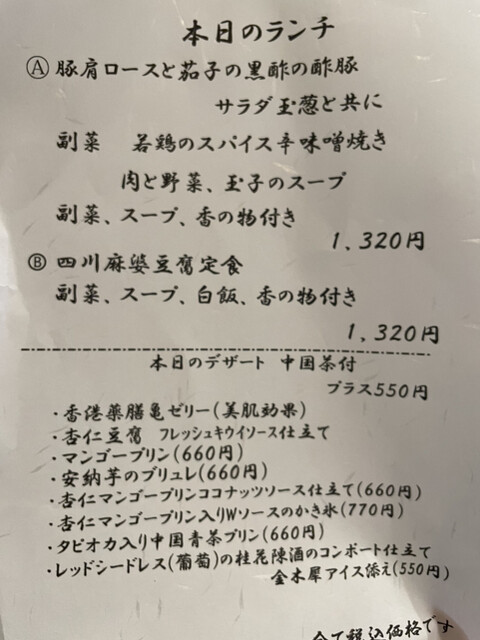 本日のランチ
Ⓐ 豚肩ロースと茄子の黒酢の酢豚
サラダ玉葱と共に
副菜 若鶏のスパイス辛味噌焼き
肉と野菜、玉子のスープ
副菜、スープ、香の物付き
1,320円
Ⓑ 四川麻婆豆腐定食
副菜、スープ、白飯、香の物付き
1,320円
本日のデザート 中国茶付
プラス550円
・香港薬膳亀ゼリー(美肌効果)
・杏仁豆腐 フレッシュキウイソース仕立て
・マンゴープリン(660円)
・安納芋のブリュレ(660円)
・杏仁マンゴープリンココナッツソース仕立て(660円)
・杏仁マンゴープリン入りWソースのかき氷(770円)
・タピオカ入り中国青茶プリン(660円)
・レッドシードレス(葡萄)の桂花陳酒のコンポート仕立て
金木犀アイス添え(550円)
全て税込価格です